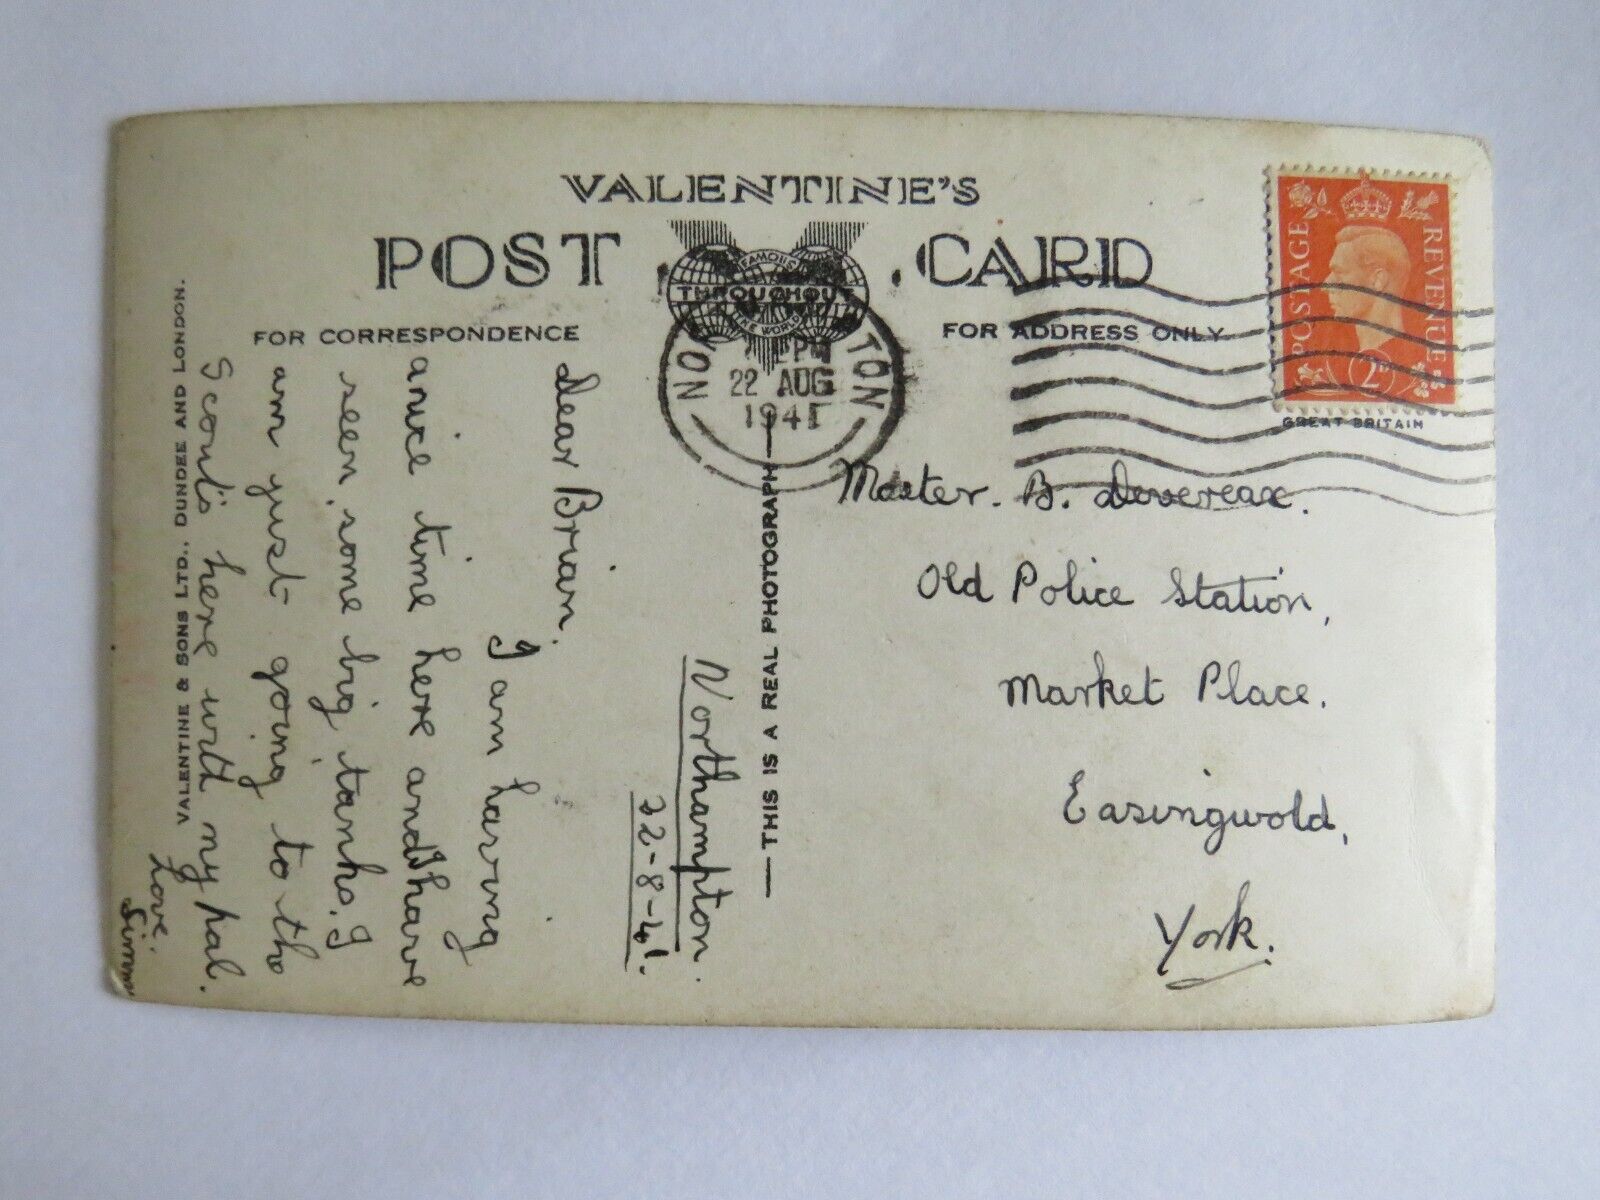 VALENTINE'S
POST CARD
FAMOUS
THROUGHOUT
THE WORLD
FOR CORRESPONDENCE
FOR ADDRESS ONLY
POSTAGE REVENUE
2D
GREAT BRITAIN
TON
PM
22 AUG
1941
Northampton.
22-8-41.
Dear Brian.
I am having
a nice time here and I have
seen some big tanks. I
am just going to the
Scouts here with my pal.
Love.
VALENTINE & SONS LTD., DUNDEE AND LONDON.
THIS IS A REAL PHOTOGRAPH
Master. B. Devereax.
Old Police Station,
Market Place.
Easingwold,
York.